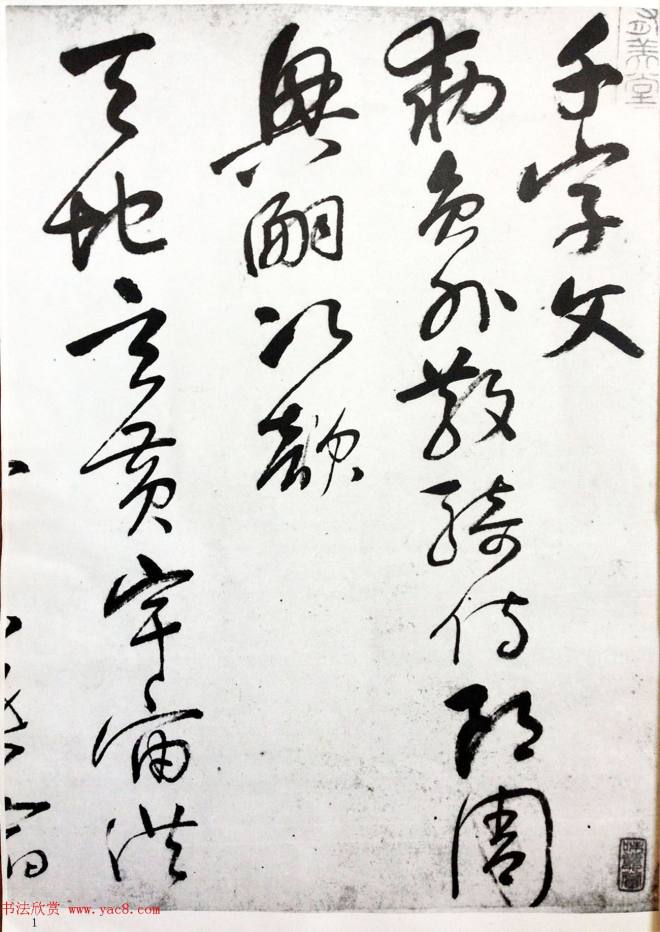 千字文
勅員外散騎侍郎周
興嗣次韻
天地玄黃宇宙洪
書法欣赏 www.yac8.com
1